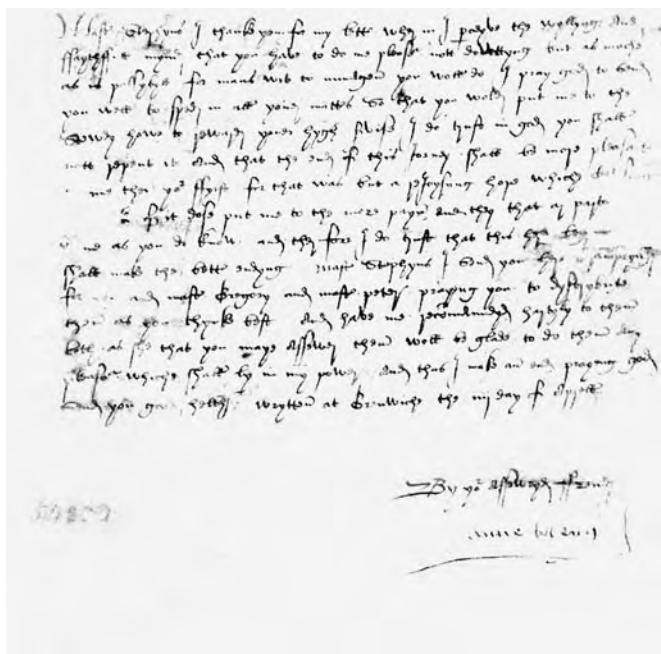 Master Stephyns I thanke you for my letter wher in I perceyve the wyllynge and
ffaythfull mynd that you have to do me plesur not dowttyng but as muche
as is possyble for mans wit to immagen you woll do I pray god to send
you well to sped in all your matters so that you wold put me to the
how to reward your hygh servise I do trust in god you shall
nott repent it and that the end of this jorney shall be more plesant to
me then your ffyrst for that was but a rejoysyng hope which
of it dose put me to the more payn and they that ar parte
me as you do know and therfore I do trust that this
shall make the better endyng Master Stephyns I send you here
for you and master Gregory and master peter praying you to dystrybute
them as you thynke best and have me recommended hartyly to them
both as she that you maye assewer them woll be glade to do them any
plesur whiche shall by in my power and thus I make an end praying god
send you good helthe wrytten at Grenwiche the iiij day of Aprell
By your assewred ffrend
anne boleyn